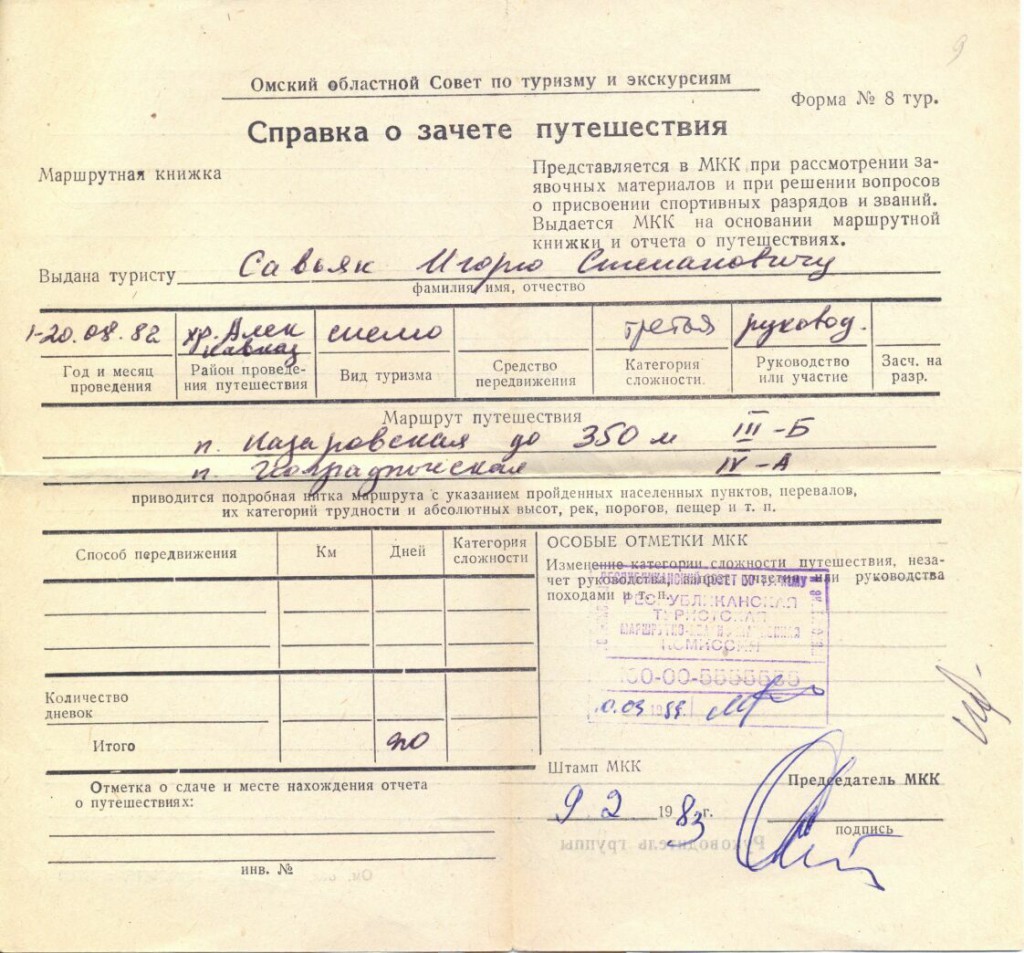 9
Омский областной Совет по туризму и экскурсиям
Форма № 8 тур.
Справка о зачете путешествия
Маршрутная книжка
Представляется в МКК при рассмотрении за-
явочных материалов и при решении вопросов
о присвоении спортивных разрядов и званий.
Выдается МКК на основании маршрутной
книжки и отчета о путешествиях.
Выдана туристу Савьяк Игорю Степановичу
фамилия, имя, отчество
1-20.08.82
Год и месяц
проведения
хр. Алек
Кавказ
Район проведе-
ния путешествия
спелео
Вид туризма
Средство
передвижения
третья
Категория
сложности.
руковод.
Руководство
или участие
Засч. на
разр.
Маршрут путешествия
п. Назаровская до 350 м III-Б
п. IV-А
приводится подробная нитка маршрута с указанием пройденных населенных пунктов, перевалов,
их категорий трудности и абсолютных высот, рек, порогов, пещер и т. п.
Способ передвижения
Км
Дней
Категория
сложности
Количество
дневок
Итого
20
ОСОБЫЕ ОТМЕТКИ МКК
Изменение категории сложности путешествия, неза-
чет руководства, запрет участия или руководства
походами и т. п.
РЕСПУБЛИКАНСКАЯ
ТУРИСТСКАЯ
КОМИССИЯ
00-00-5555555
Штамп МКК
9 2 1983 г.
Председатель МКК
подпись
Отметка о сдаче и месте нахождения отчета
о путешествиях:
инв. №
Руководитель группы